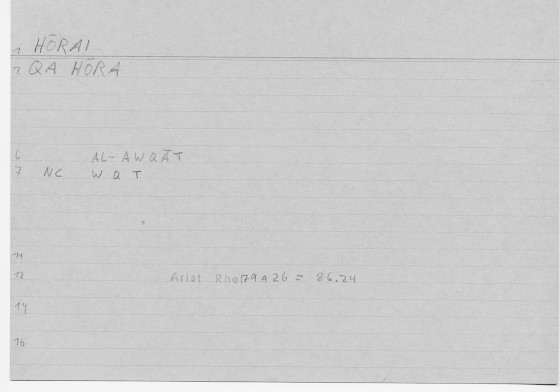 1 HŌRAI
2 QA HŌRA
6 AL-AWQĀT
7 NC W Q T
11
12 Arist Rhet 79a26 = 86.24
14
16